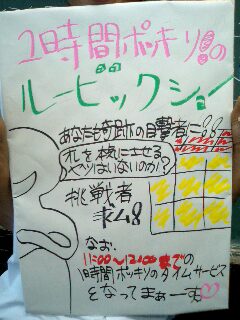 1時間ポッキリ!!の
ルービックショー
あなたも奇跡の目撃者に!!
オレを本気にさせる
ヤツはいないのか!?
挑戦者
求ム!!
なお、
11:00〜12:00までの
1時間ポッキリのタイムサービス
となってまぁーす♡